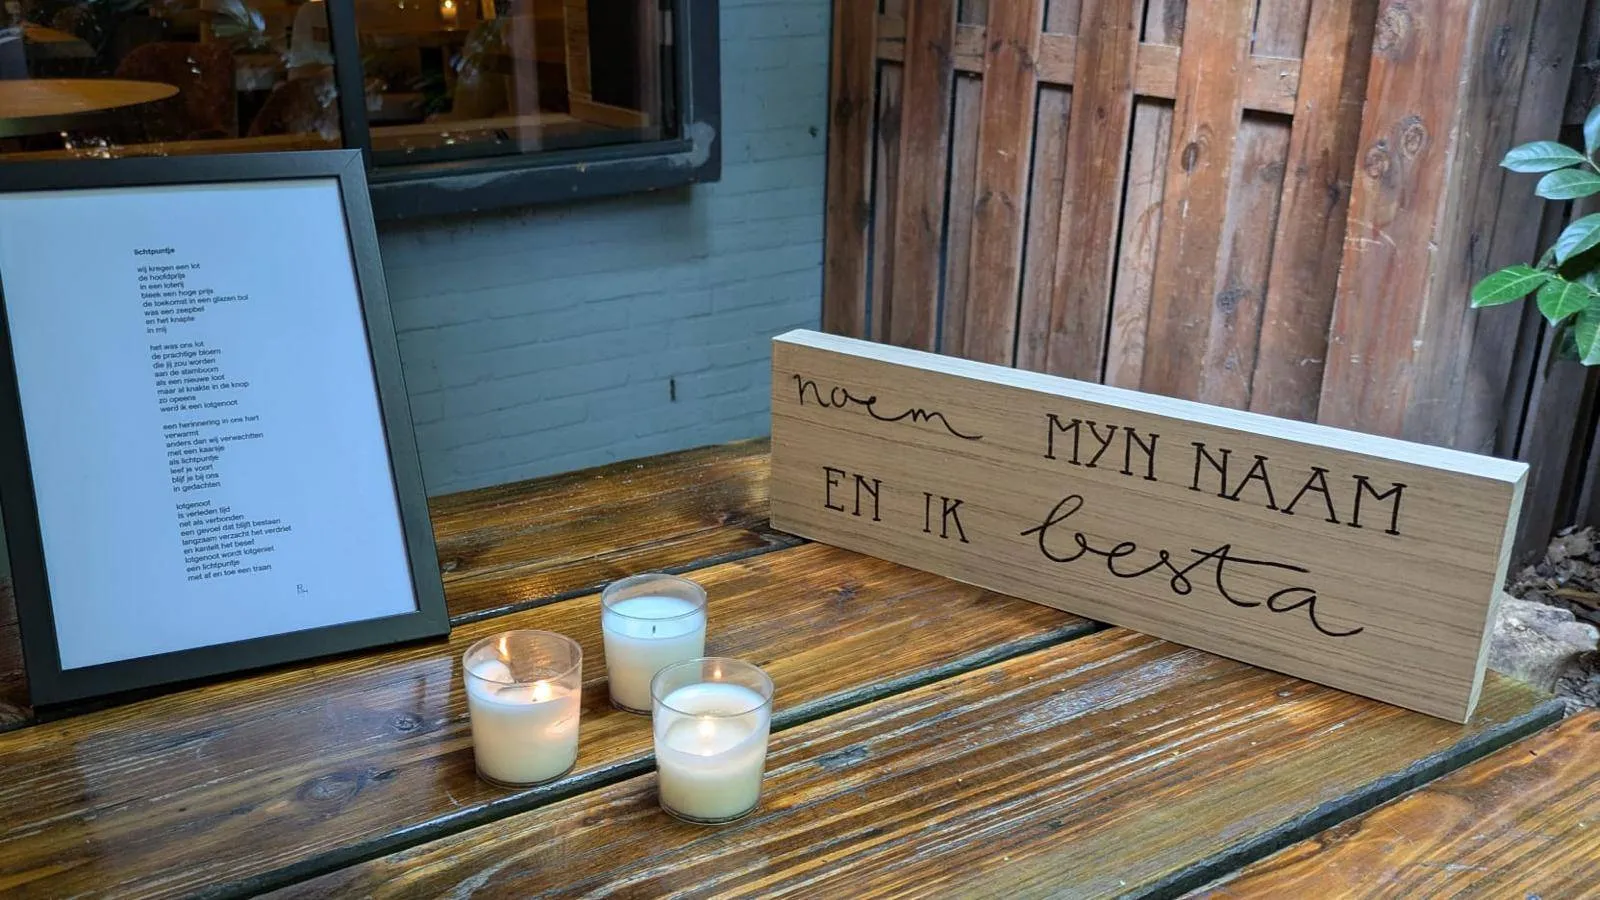 lichtpuntje
wij kregen een lot
de hoofdprijs
in een loterij
bleek een hoge prijs
de toekomst in een glazen bol
was een zeepbel
en het knapte
in mij
het was ons lot
de prachtige bloem
die jij zou worden
aan de stamboom
als een nieuwe loot
maar al knakte in de knop
zo opeens
werd ik een lotgenoot
een herinnering in ons hart
verwarmt
anders dan wij verwachtten
met een kaarsje
als lichtpuntje
leef je voort
blijf je bij ons
in gedachten
lotgenoot
is verleden tijd
net als verbonden
een gevoel dat blijft bestaan
langzaam verzacht het verdriet
en kantelt het besef
lotgenoot wordt lotgeniet
een lichtpuntje
met af en toe een traan
noem MYN NAAM
EN IK besta